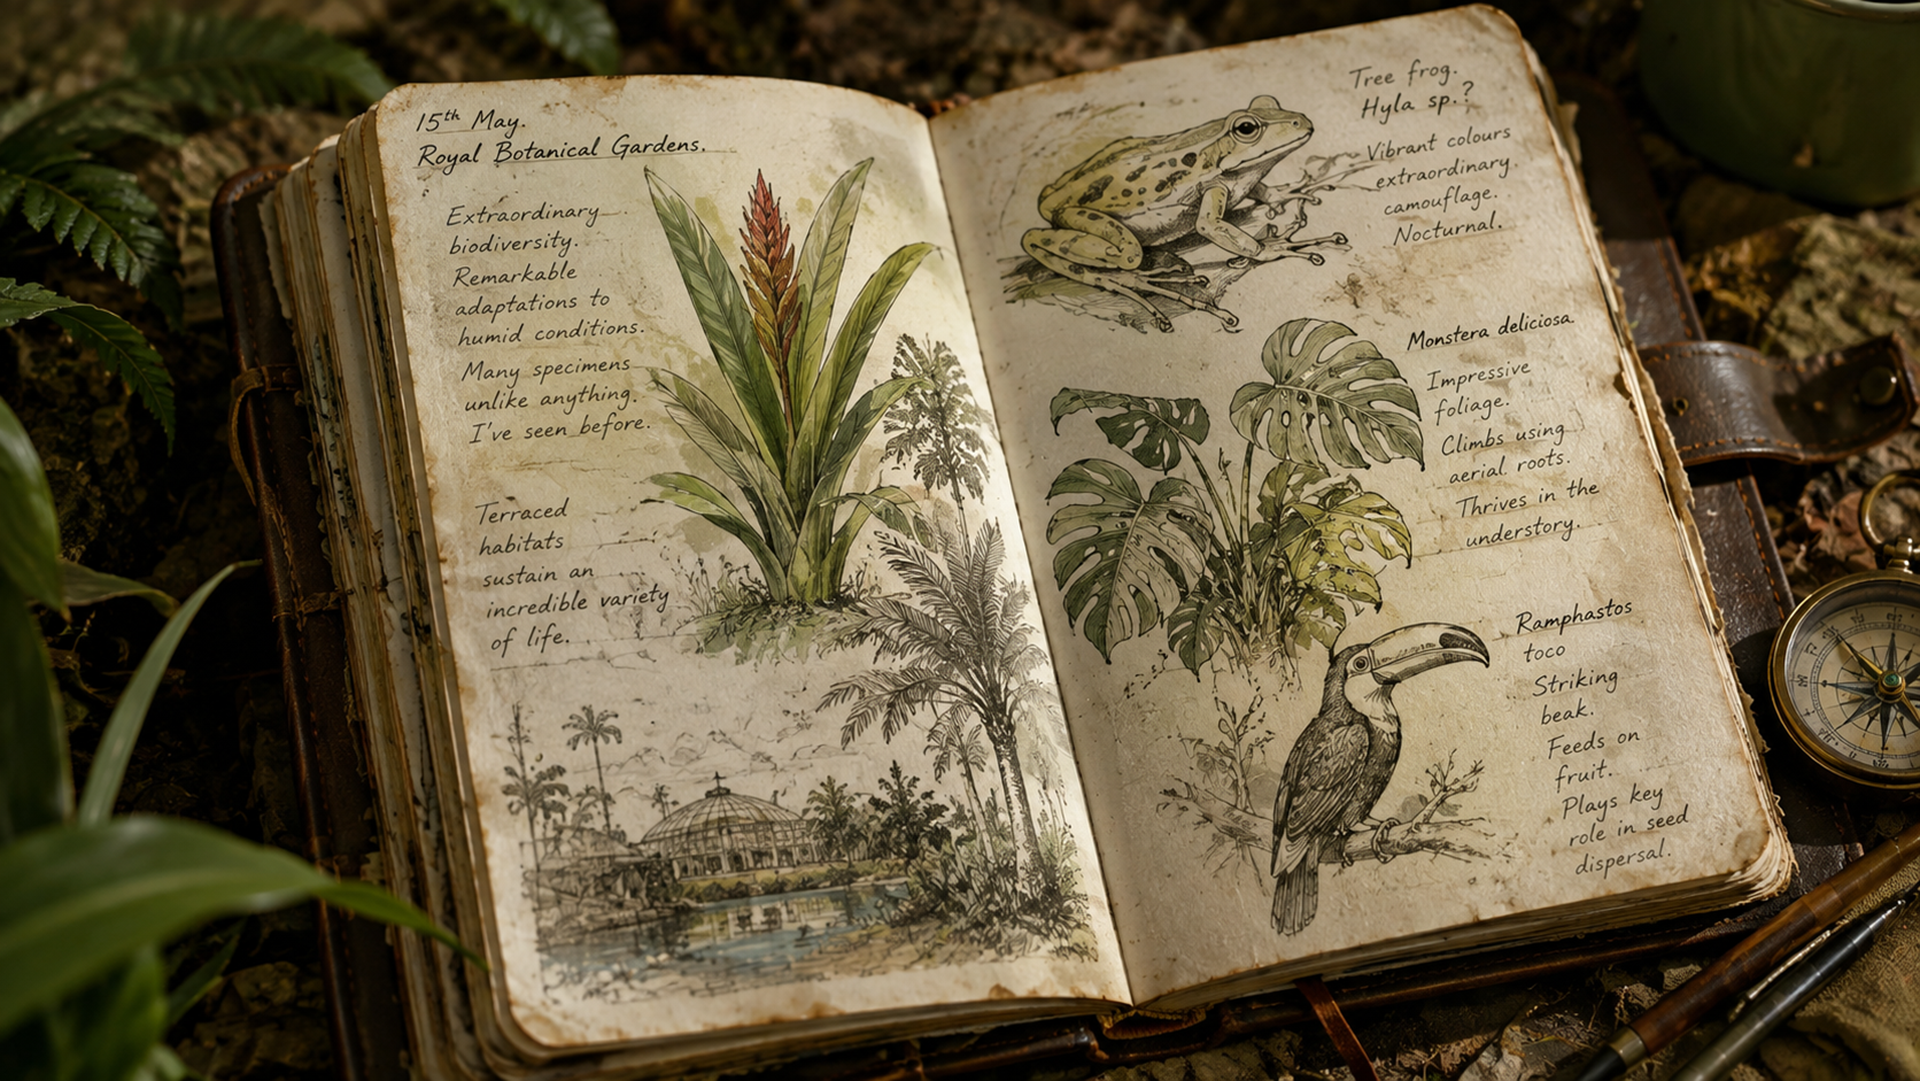 15th May.
Royal Botanical Gardens.
Extraordinary
biodiversity.
Remarkable
adaptations to
humid conditions.
Many specimens
unlike anything.
I've seen before.
Terraced
habitats
sustain an
incredible variety
of life.
Tree frog.
Hyla sp.?
Vibrant colours
extraordinary.
camouflage.
Nocturnal.
Monstera deliciosa.
Impressive
foliage.
Climbs using
aerial roots.
Thrives in the
understory.
Ramphastos
toco
Striking
beak.
Feeds on
fruit.
Plays key
role in seed
dispersal.